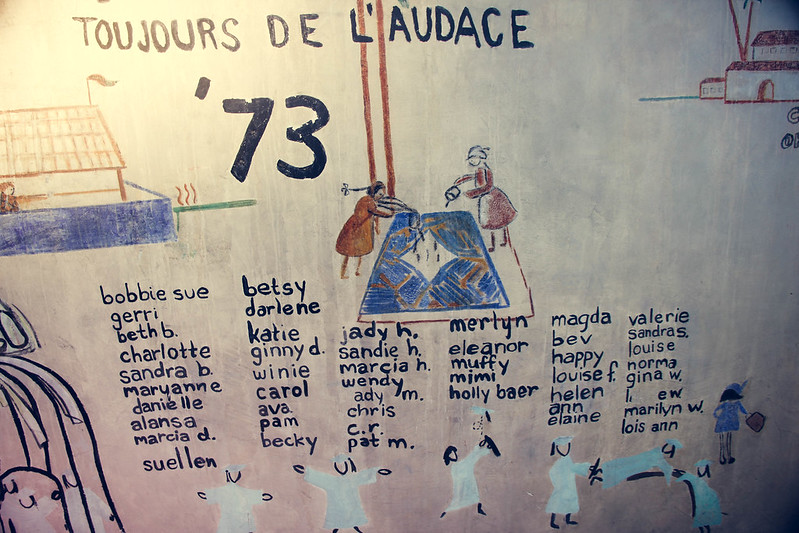 TOUJOURS DE L'AUDACE
'73
bobbie sue
gerri
beth b.
charlotte
sandra b.
maryanne
danielle
alansa
marcia d.
suellen
betsy
darlene
katie
ginny d.
winie
carol
ava.
pam
becky
jady h.
sandie h.
marcia h.
wendy
ady m.
chris
c.r.
pat m.
merlyn
eleanor
muffy
mimi
holly baer
magda
bev
happy
louise f.
helen
ann
elaine
valerie
sandra s.
louise
norma
gina w.
ew
marilyn w.
lois ann